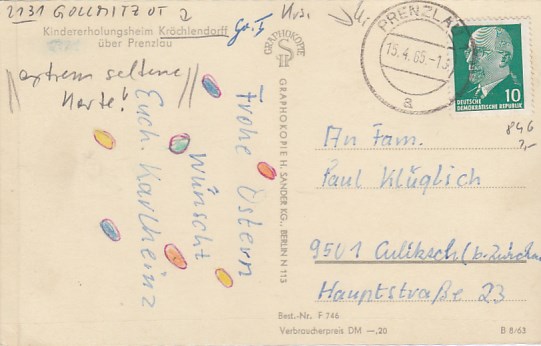 2131 GOLLMITZ OT 2
Kindererholungsheim Kröchlendorff
über Prenzlau
extrem seltene
Karte!
Frohe Ostern
wünscht
Euch Karlheinz
GRAPHOKOPIE
GRAPHOKOPIE H. SANDER KG., BERLIN N 113
PRENZLAU
15.4.65-1
a
10
DEUTSCHE
DEMOKRATISCHE REPUBLIK
846
An Fam.
Paul Klüglich
9501 Culitzsch (b. Zwickau
Hauptstraße 23
Best.-Nr. F 746
Verbraucherpreis DM —,20
B 8/63